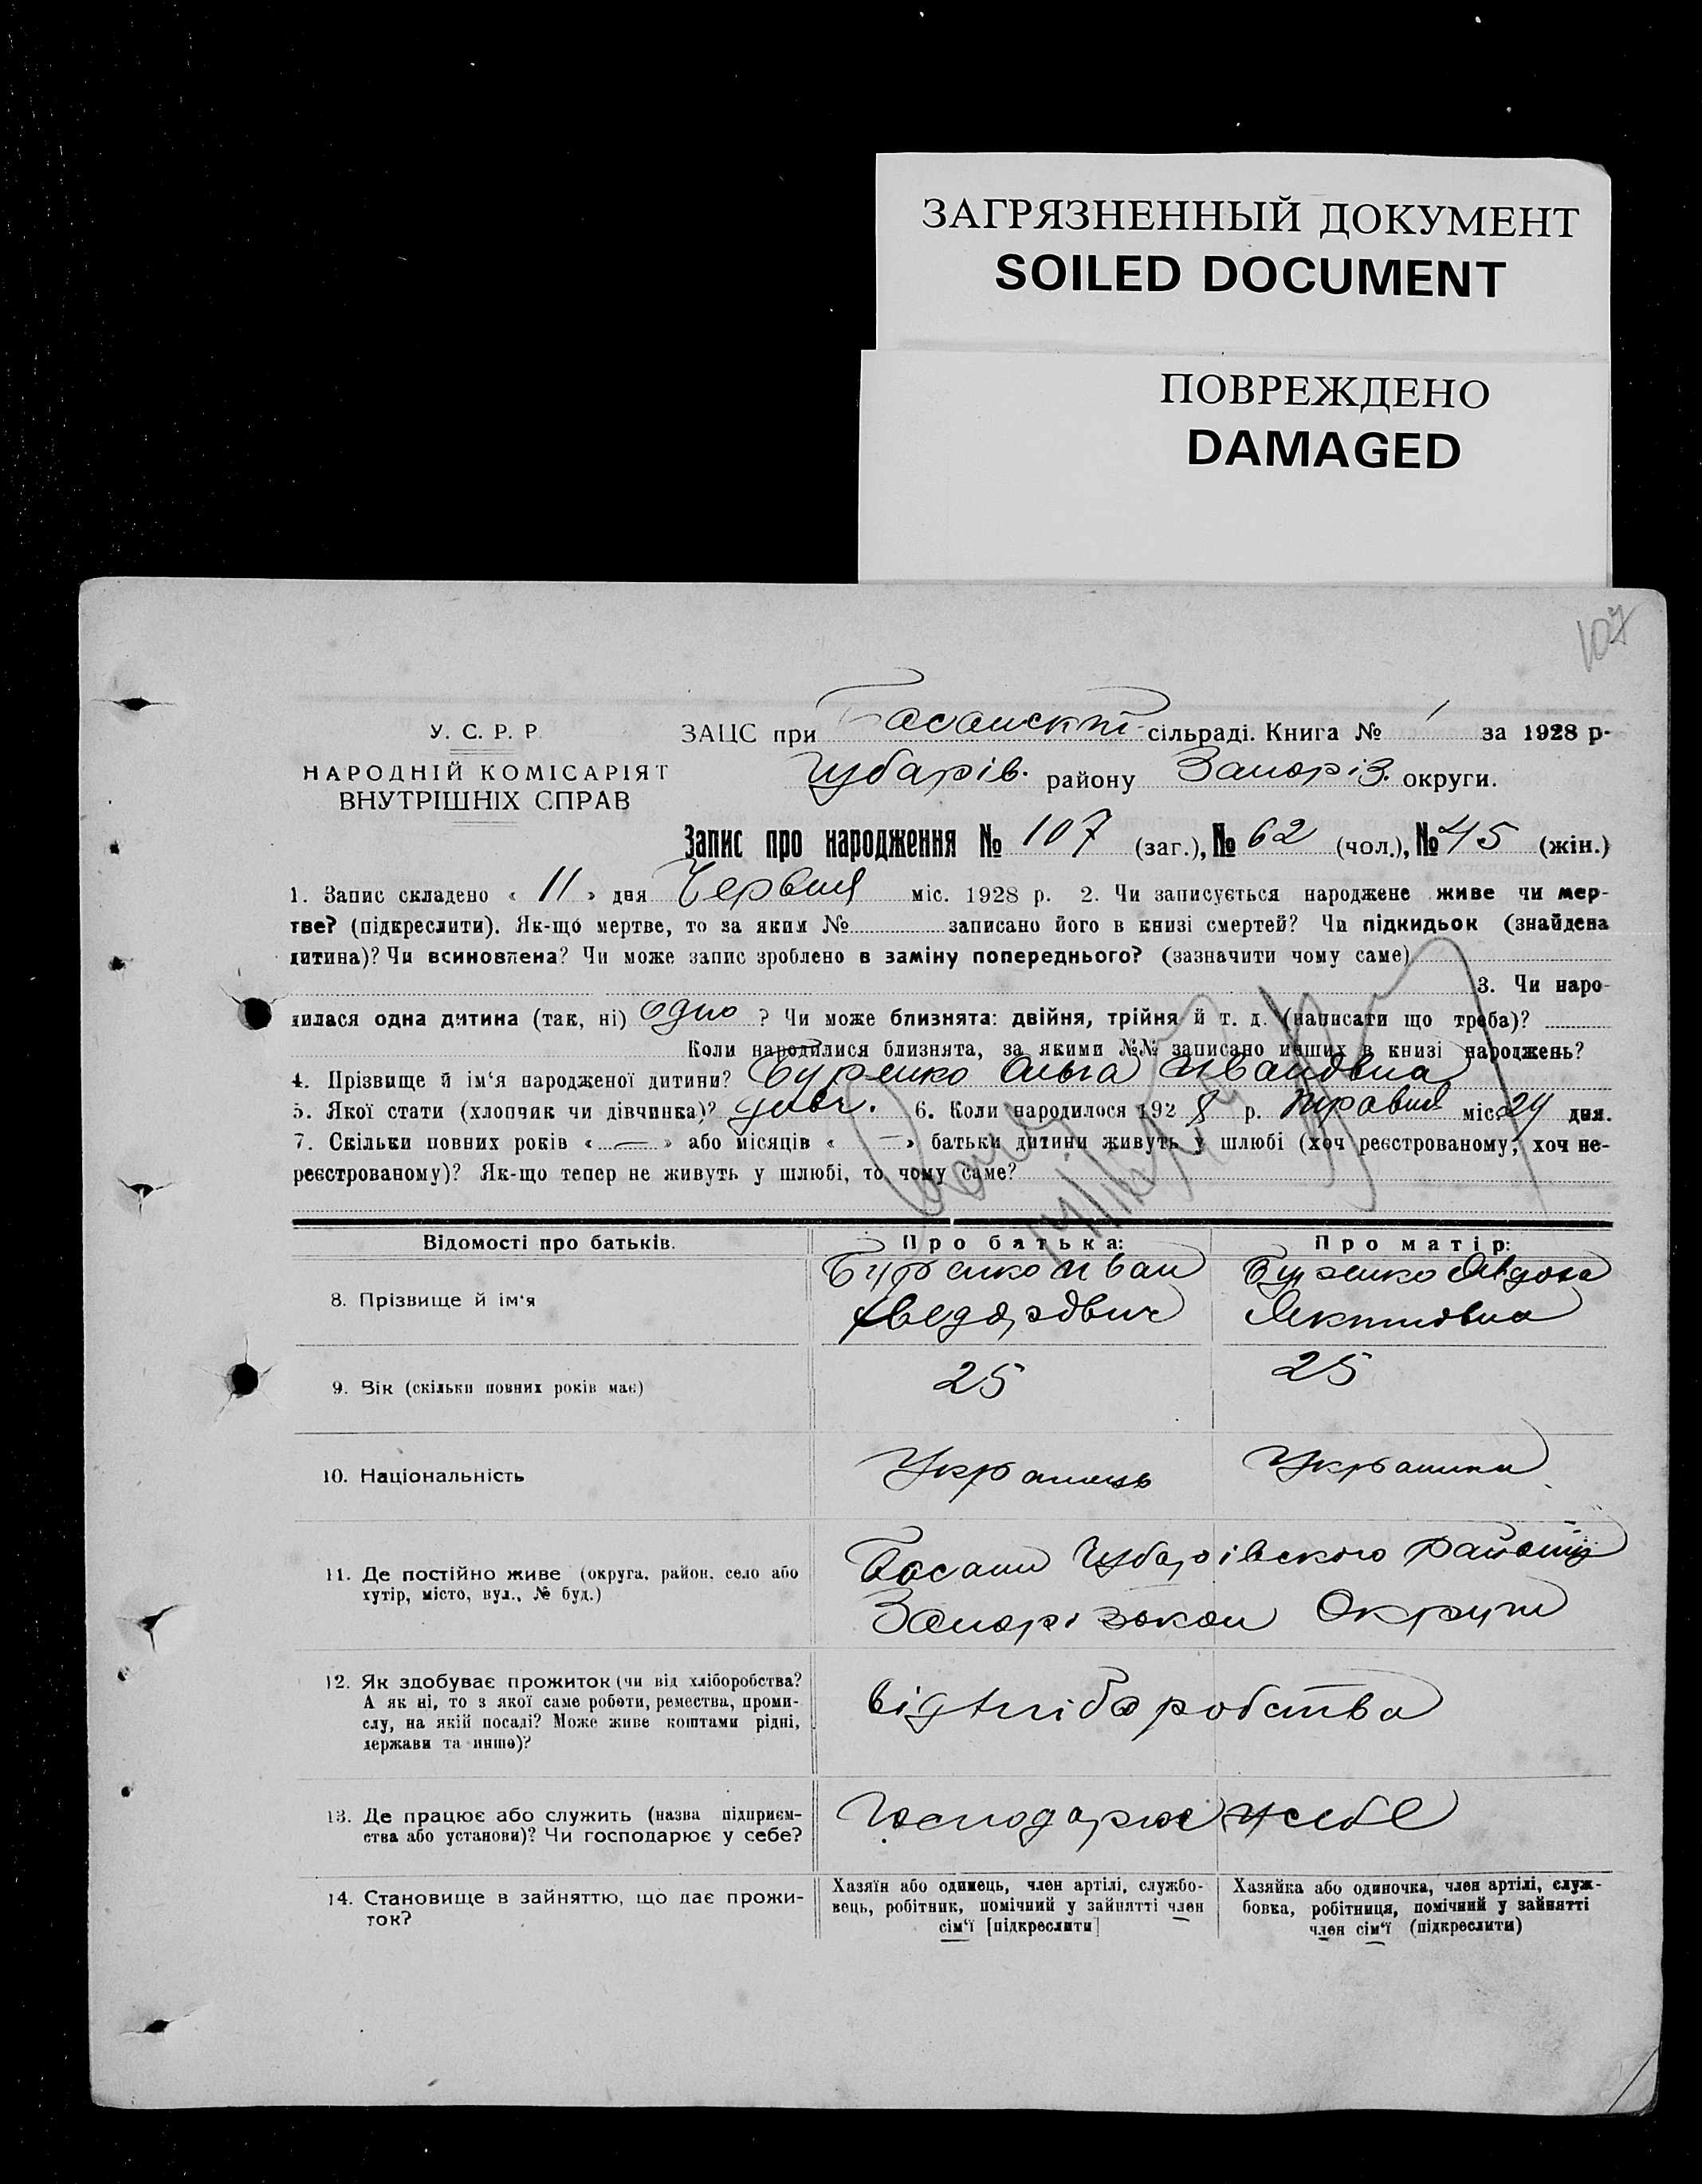 ЗАГРЯЗНЕННЫЙ ДОКУМЕНТ
SOILED DOCUMENT
ПОВРЕЖДЕНО
DAMAGED
107
У. С. Р. Р.
НАРОДНІЙ КОМІСАРІЯТ
ВНУТРІШНІХ СПРАВ
ЗАЦС при Басанскій сільраді. Книга № 1 за 1928 р.
Чубарів. району Запоріз. округи.
Запис про народження № 107 (заг.), № 62 (чол.), № 45 (жін.)
1. Запис складено « 11 » дня Червня міс. 1928 р. 2. Чи записується народжене живе чи мер-
тве? (підкреслити). Як-що мертве, то за яким № записано його в книзі смертей? Чи підкидьок (знайдена
дитина)? Чи всиновлена? Чи може запис зроблено в заміну попереднього? (зазначити чому саме)
3. Чи наро-
дилася одна дитина (так, ні) одно ? Чи може близнята: двійня, трійня й т. д. (написати що треба)?
Коли народилися близнята, за якими №№ записано инших в книзі народжень?
4. Прізвище й ім‘я народженої дитини? Буренко Ольга Ивановна
5. Якої стати (хлопчик чи дівчинка)? дивч. 6. Коли народилося 1928 р. Травня міс. 24 дня.
7. Скільки повних років « — » або місяців « — » батьки дитини живуть у шлюбі (хоч реєстрованому, хоч не-
реєстрованому)? Як-що тепер не живуть у шлюбі, то чому саме?
Відомості про батьків. Про батька: Про матір:
8. Прізвище й ім‘я Буренко Иван Буренко Явдоха
Хведорович
9. Вік (скільки повних років має) 25 25
10. Національність Украинець Украинка
11. Де постійно живе (округа, район, село або Басани Чубарівского Району
хутір, місто, вул., № буд.) Запорізскои Округи
12. Як здобуває прожиток (чи від хліборобства?
А як ні, то з якої саме роботи, ремества, проми- від хліборобства
слу, на якій посаді? Може живе коштами рідні,
держави та инше)?
13. Де працює або служить (назва підприєм- Господарює у себе
ства або установи)? Чи господарює у себе?
14. Становище в зайняттю, що дає прожи-
ток?
Хазяїн або одинець, член артілі, службо-
вець, робітник, помічний у зайнятті член
сім‘ї [підкреслити]
Хазяйка або одиночка, член артілі, служ-
бовка, робітниця, помічний у зайнятті
член сім‘ї (підкреслити)